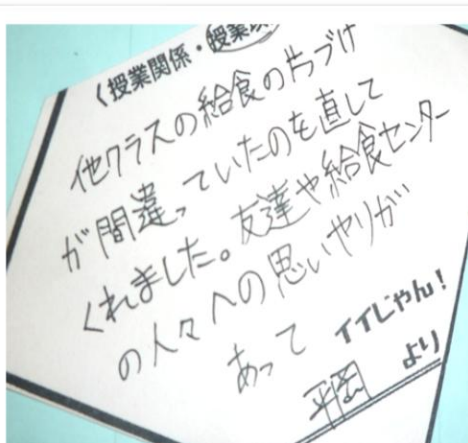 〈授業関係・授業以
他クラスの給食の片づけ
が間違っていたのを直して
くれました。友達や給食センター
の人々への思いやりが
あって イイじゃん!
平岡 より